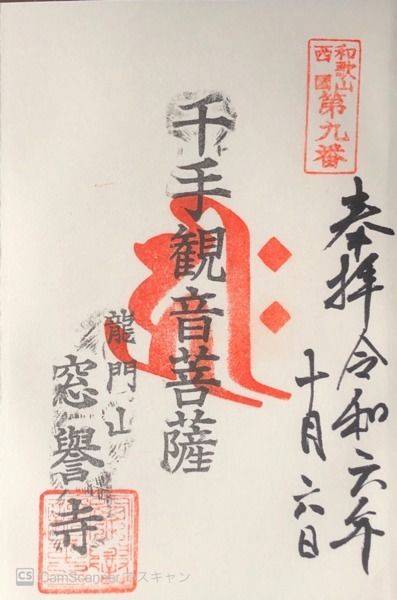 和歌山
西國
第九番
奉拝令和六年
十月六日
千手観音菩薩
龍門山
窓誉寺
CS CamScanner でスキャン